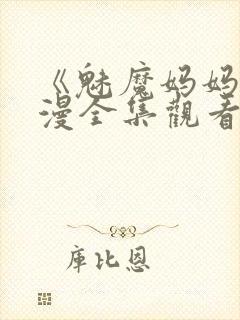 《魅魔妈妈
漫全集觀看
庫比恩